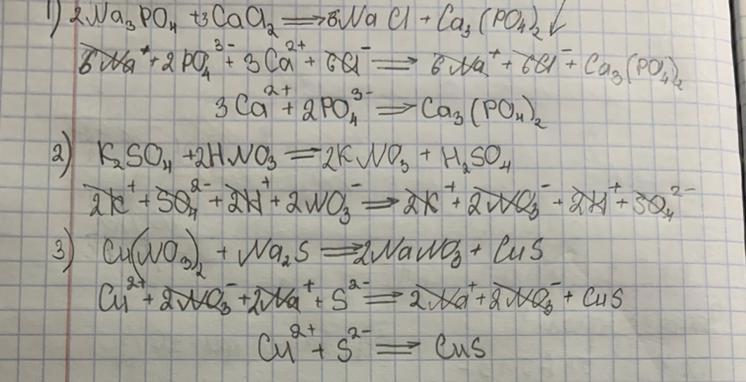 1) 2Na₃PO₄ + 3CaCl₂ ⟹ 6NaCl + Ca₃(PO₄)₂↓
6Na⁺ + 2PO₄³⁻ + 3Ca²⁺ + 6Cl⁻ ⟹ 6Na⁺ + 6Cl⁻ + Ca₃(PO₄)₂
3Ca²⁺ + 2PO₄³⁻ ⟹ Ca₃(PO₄)₂
2) K₂SO₄ + 2HNO₃ ⟹ 2KNO₃ + H₂SO₄
2K⁺ + SO₄²⁻ + 2H⁺ + 2NO₃⁻ ⟹ 2K⁺ + 2NO₃⁻ + 2H⁺ + SO₄²⁻
3) Cu(NO₃)₂ + Na₂S ⟹ 2NaNO₃ + CuS
Cu²⁺ + 2NO₃⁻ + 2Na⁺ + S²⁻ ⟹ 2Na⁺ + 2NO₃⁻ + CuS
Cu²⁺ + S²⁻ ⟹ CuS